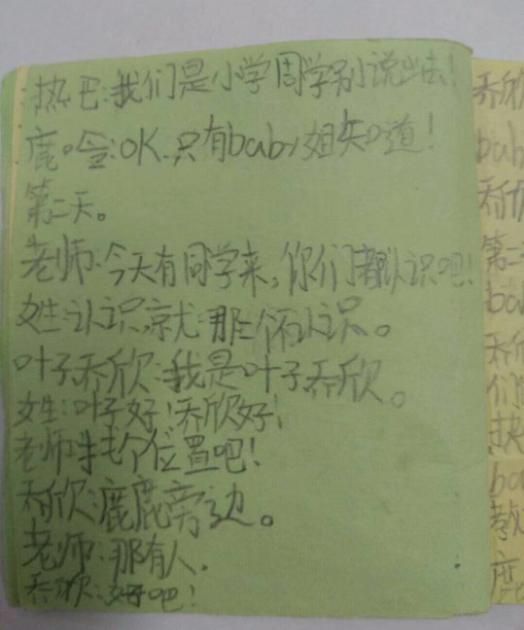 热巴:我们是小学同学别说出去!
鹿晗:OK.只有baby姐知道!
第二天。
老师:今天有同学来,你们都认识吧!
女生:认识,就那个不认识。
叶子乔欣:我是叶子乔欣。
女生:叶子好!乔欣好!
老师:找个位置吧!
乔欣:鹿鹿旁边。
老师:那有人.
乔欣:好吧!
乔欣
bab
乔欣
第二
ba
乔欣
们
热
ba
教
鹿